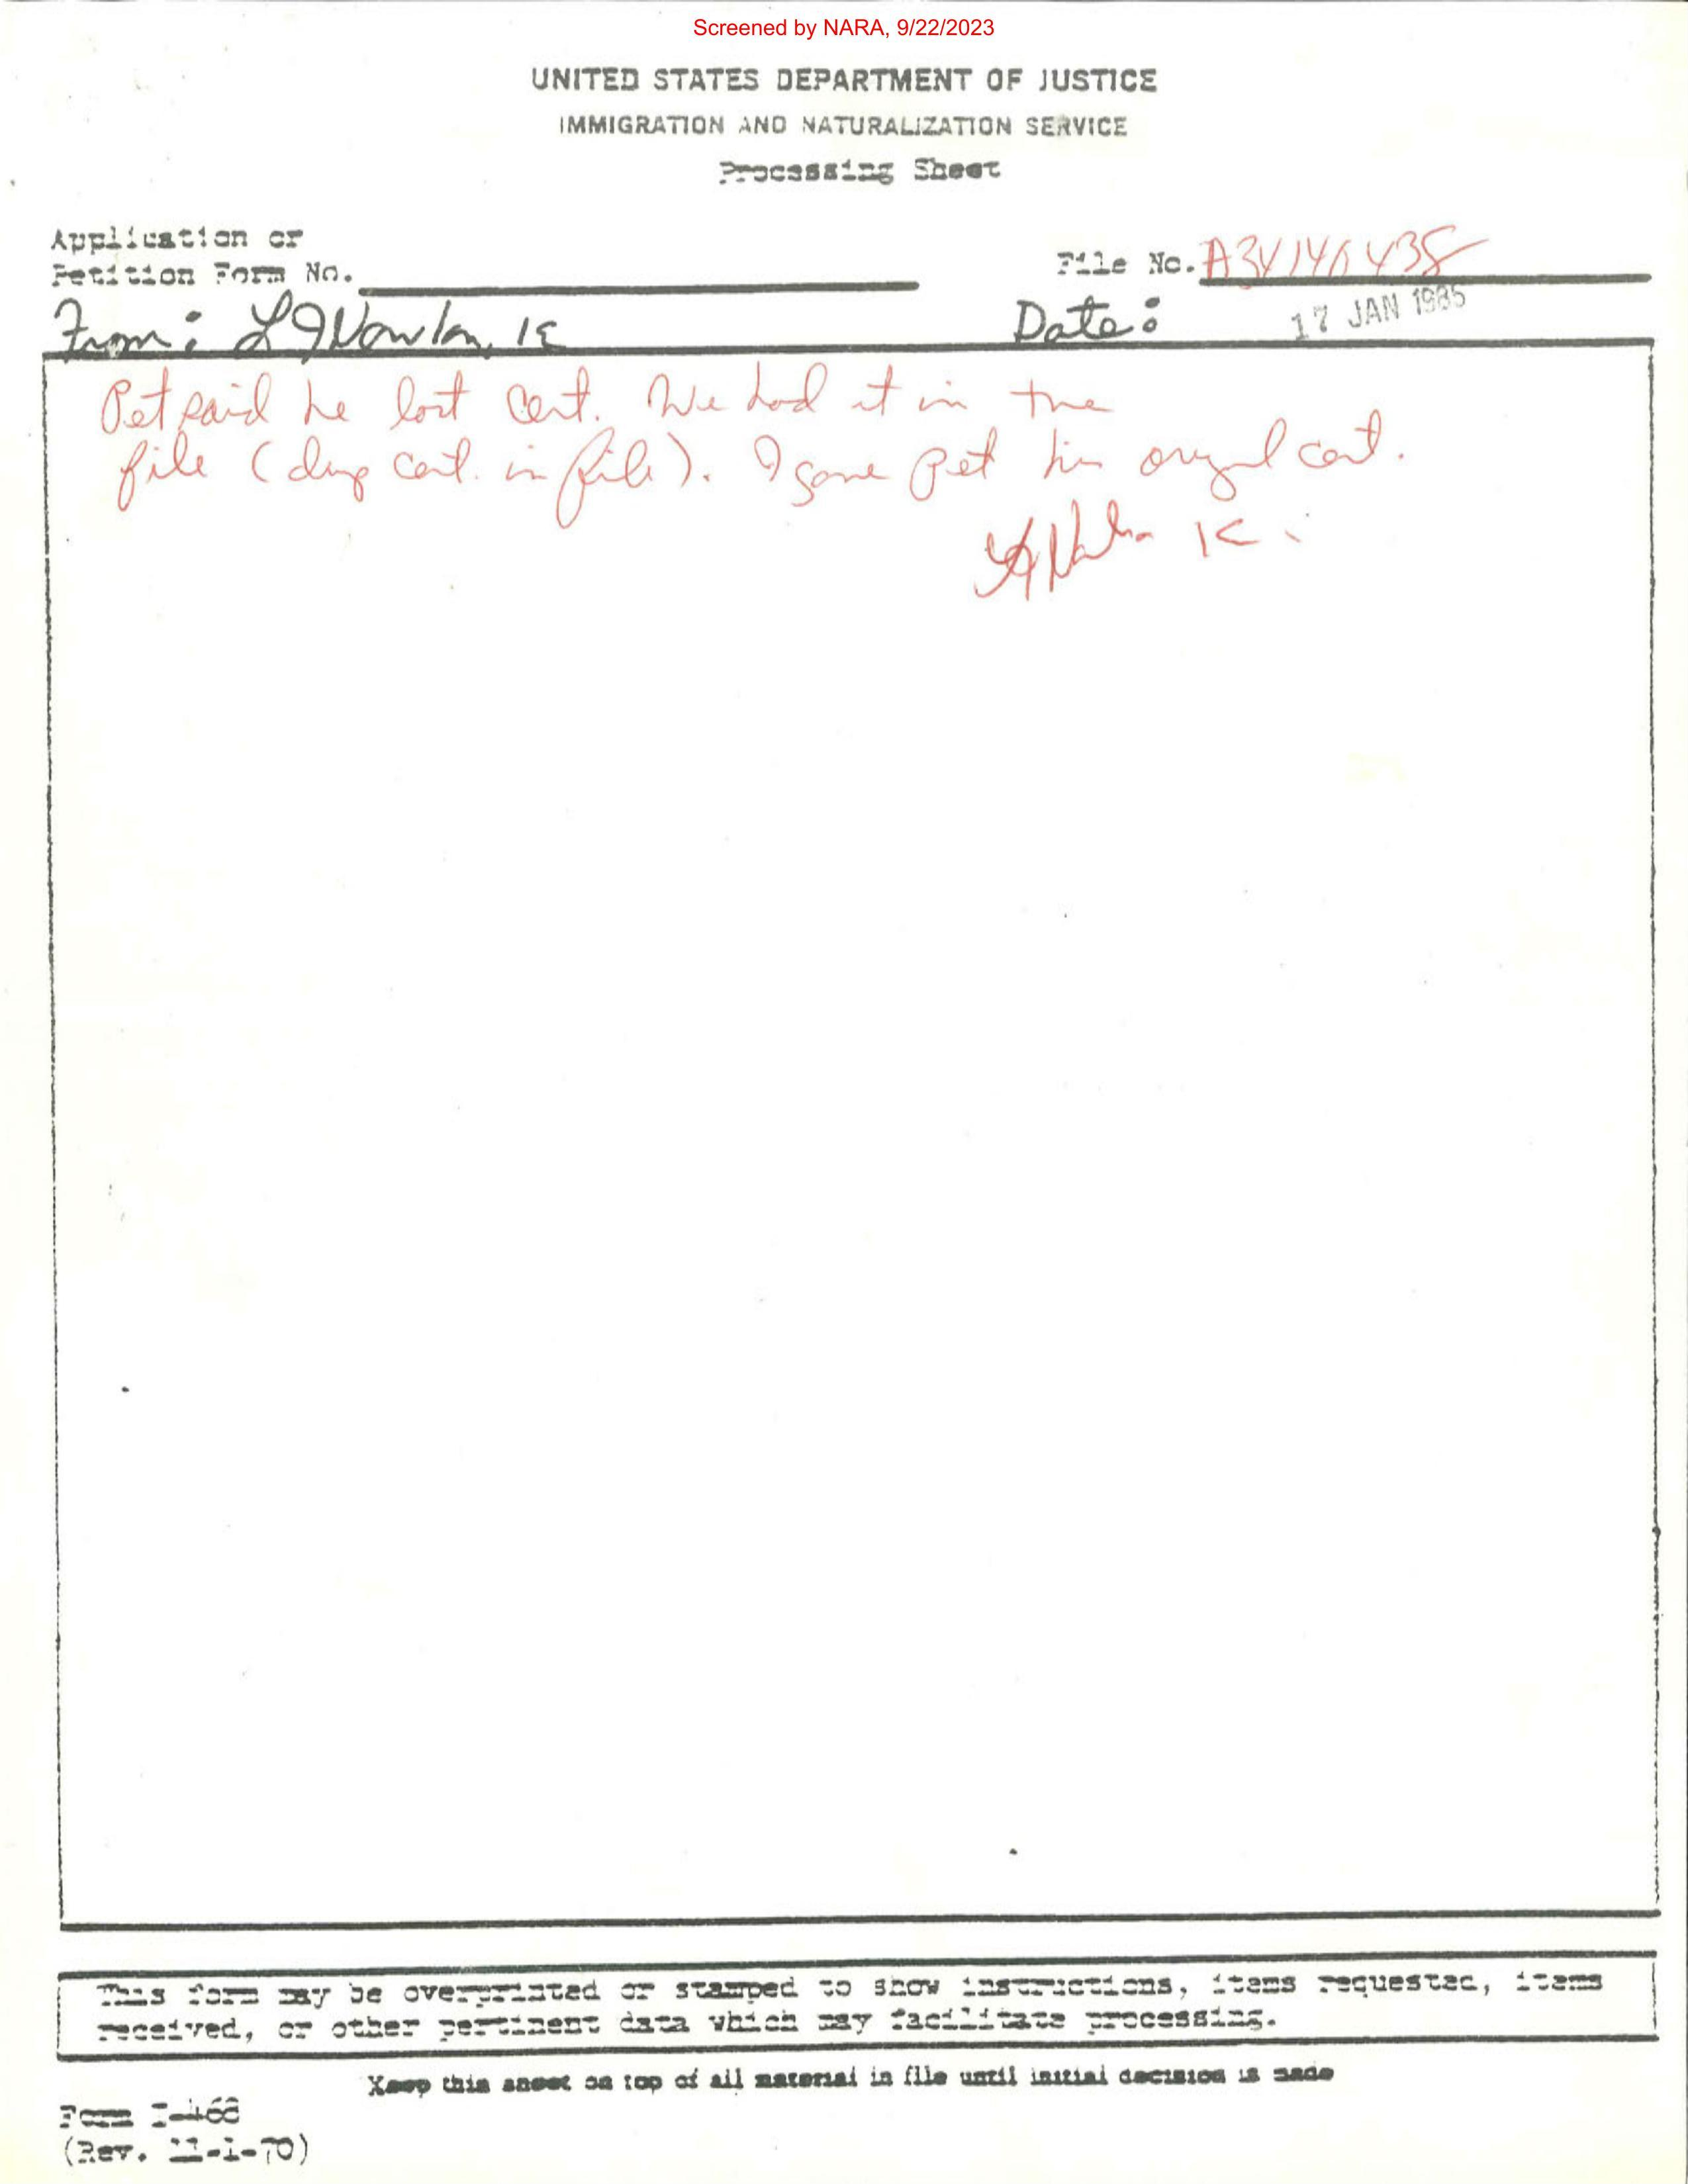 Screened by NARA, 9/22/2023
UNITED STATES DEPARTMENT OF JUSTICE
IMMIGRATION AND NATURALIZATION SERVICE
Processing Sheet
Application or
Petition Form No.
File No. A34140438
From: L J Nowlan, IE
Date: 17 JAN 1985
Pet said he lost Cert. We had it in the
file (dup cert. in file). I gave Pet his original cert.
This form may be overprinted or stamped to show instructions, items requested, items
received, or other pertinent data which may facilitate processing.
Keep this sheet on top of all material in file until initial decision is made
Form I-468
(Rev. 11-1-70)